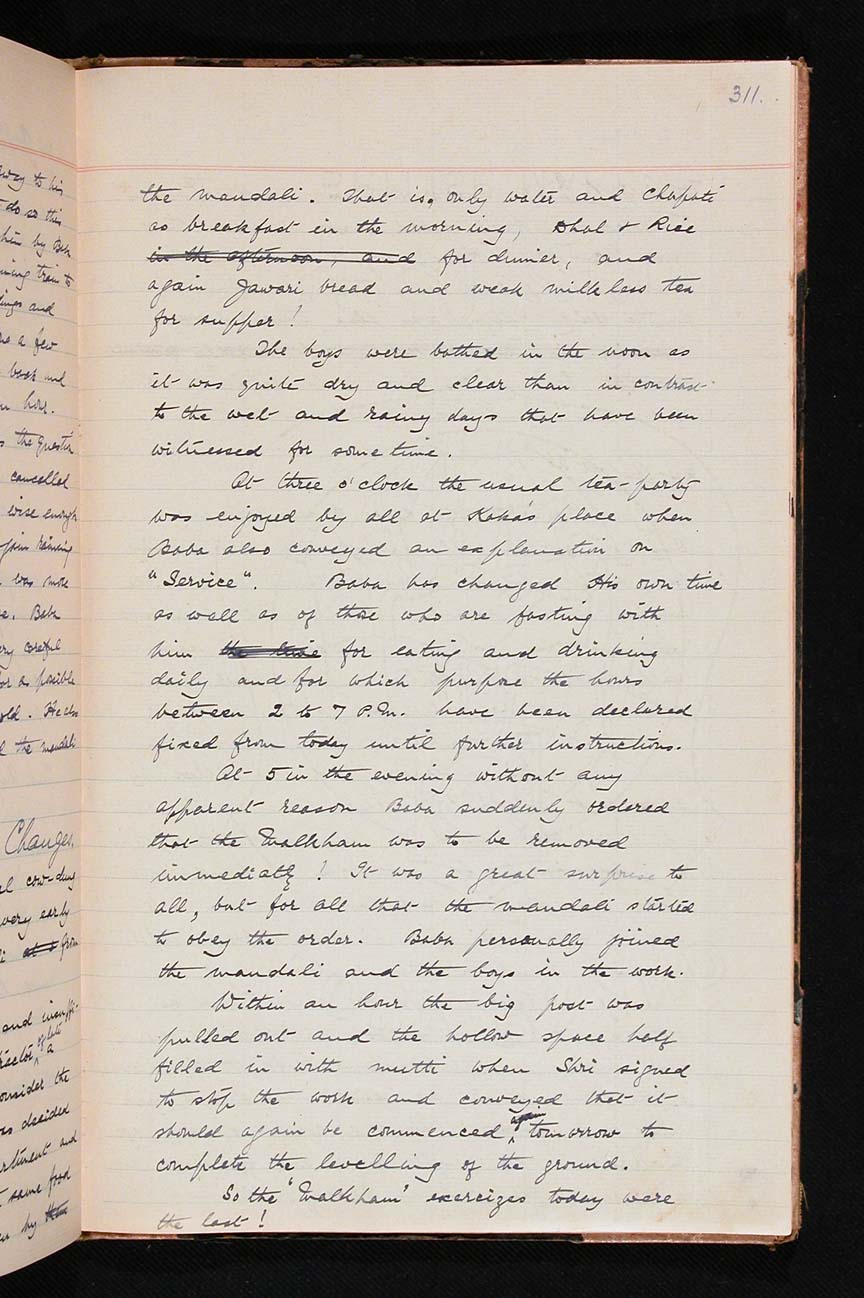 way to his
do so this
him by Baba
ning train to
lings and
a few
back and
hour.
the question
cancelled
wise enough
join
was more
Baba
ery careful
or as possible
old. He also
the mandali
Changes.
cow-dung
very early
at from
and insuffi-
of late
a
onsider the
as decided
rtment and
same food
by
311.
the mandali. That is, only water and Chapati
as breakfast in the morning, Dhal & Rice
in the afternoon, and for dinner, and
again Jawari bread and weak milkless tea
for supper!
The boys were bathed in the noon as
it was quite dry and clear than in contrast
to the wet and rainy days that have been
witnessed for some time.
At three o'clock the usual tea-party
was enjoyed by all at Kaka's place when
Baba also conveyed an explanation on
"Service". Baba has changed His own time
as well as of those who are fasting with
him the time for eating and drinking
daily and for which purpose the hours
between 2 to 7 P.M. have been declared
fixed from today until further instructions.
At 5 in the evening without any
apparent reason Baba suddenly ordered
that the Malkham was to be removed
immediatly! It was a great surprise to
all, but for all that the mandali started
to obey the order. Baba personally joined
the mandali and the boys in the work.
Within an hour the big post was
pulled out and the hollow space half
filled in with mutti when Shri signed
to stop the work and conveyed that it
should again be commenced again tomorrow to
complete the levelling of the ground.
So the 'Malkham' exercizes today were
the last!